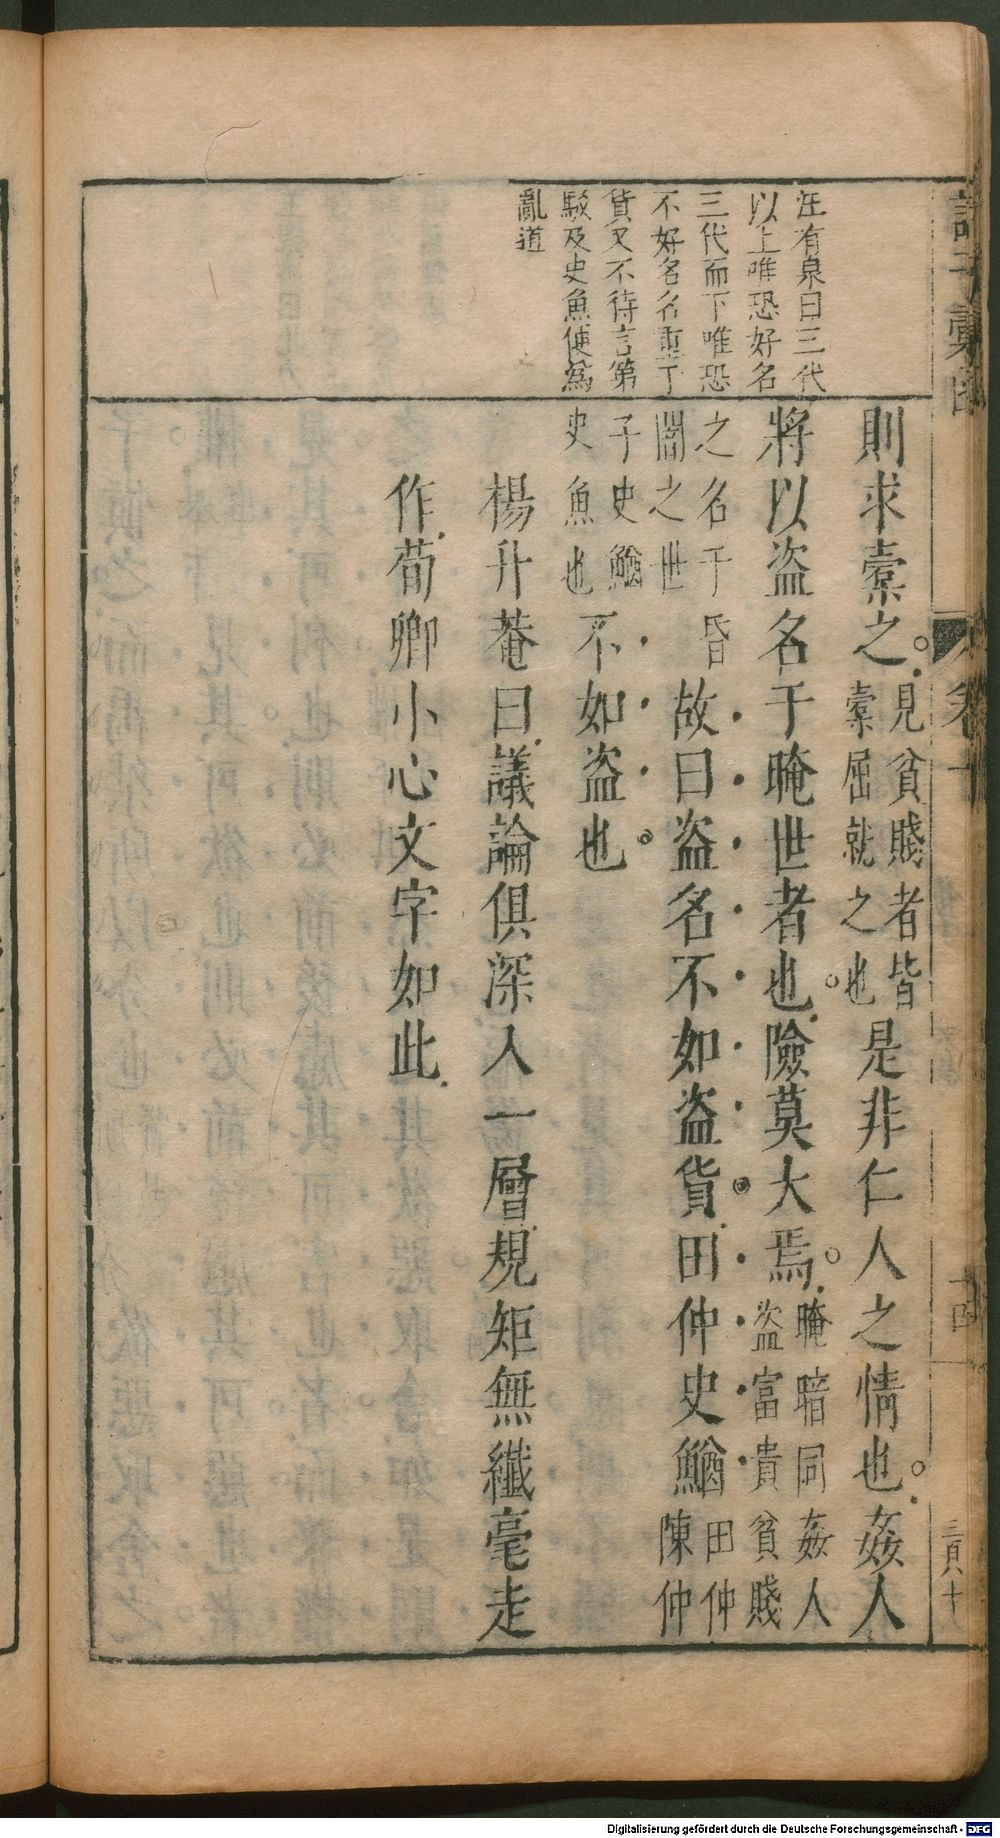 諸子彙函
卷十
十四
三頁十
汪有泉曰三代
以上唯恐好名
三代而下唯恐
不好名名重于
貨又不待言第
駁及史魚便為
亂道
則求柔之。見貧賤者皆柔屈就之也是非仁人之情也。姦人
將以盜名于晻世者也。險莫大焉。晻暗同姦人盜富貴貧賤
之名于昏闇之世故曰盜名不如盜貨田仲史鰌田仲陳仲
子史鰌史魚也不如盜也。
楊升菴曰議論俱深入一層規矩無纖毫走
作荀卿小心文字如此
Digitalisierung gefördert durch die Deutsche Forschungsgemeinschaft - DFG